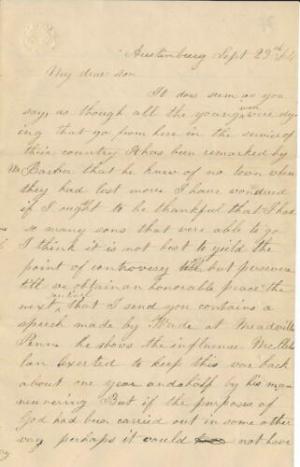 Austinburg Sept 23rd 64
My dear son
It does seem as you
say, as though all the young men were dy
ing that go from here in the service of
their country It has been remarked by
Mr Barber that he knew of no town where
they had lost more I have wondered
if I ought to be thankful that I had
so many sons that were able to go
I think it is not best to yield the
point of controversy but persevere
till we obtain an honorable peace the
next that I send you contains a
speech made by Wade at Meadville
Penn he shows the influence McClel
lan exerted to keep this war back
about one year and a half by his ma
neuvering But if the purposes of
God had been carried out in some other
way perhaps it would not have